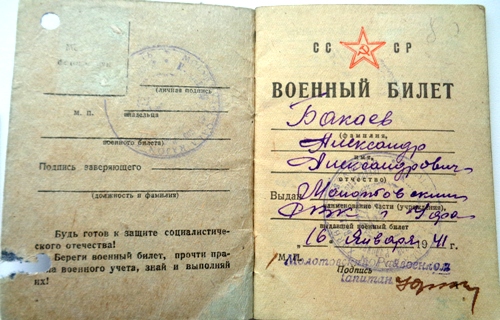 (личная подпись
М. П. владельца
военного билета)
Подпись заверяющего
(должность и фамилия)
Будь готов к защите социалистического отечества!
Береги военный билет, прочти правила военного учета, знай и выполняй их!
СС СР
ВОЕННЫЙ БИЛЕТ
Бакаев
(фамилия,
Александр
имя,
Александрович
отчество)
Выдан Молотовским
наименование части (учреждения),
РВК г. Уфа
выдавшей военный билет)
„16" Января 1941 г.
М.П. Молотовский Райвоенком
Подпись капитан